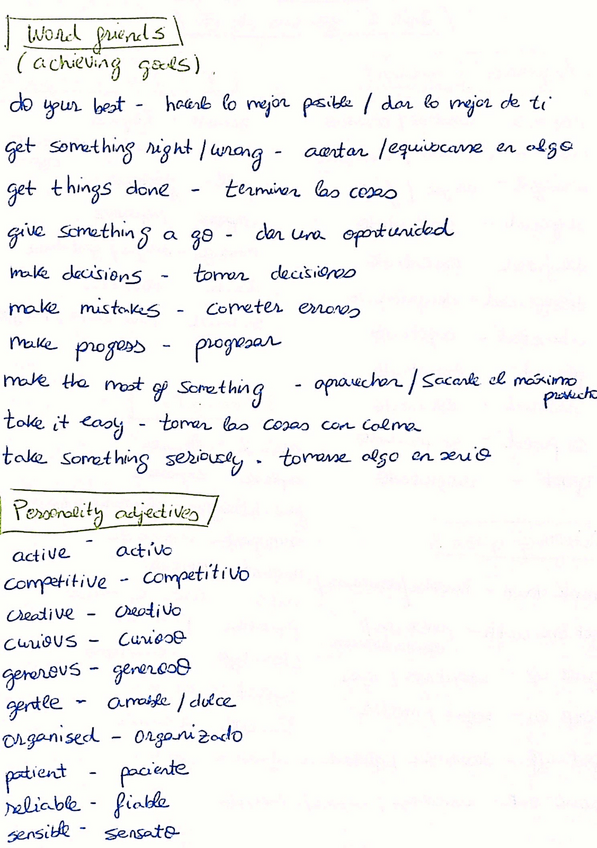 Word friends
(achieving goals).
do your best - hacerlo lo mejor posible / dar lo mejor de ti
get something right/wrong - acertar /equivocarse en algo
get things done - terminar las cosas
give something a go - dar una oportunidad
make decisions - tomar decisiones
make mistakes - cometer errores
make progess - progresar
make the most of something - aprovechar / sacarle el máximo
provecho
take it easy - tomar las cosas con calma
take something seriously - tomarse algo en serio
Personality adjectives
active - activo
competitive - competitivo
creative - creativo
curious - curioso
generous - generoso
gentle - amable / dulce
organised - organizado
patient - paciente
reliable - fiable
sensible - sensato